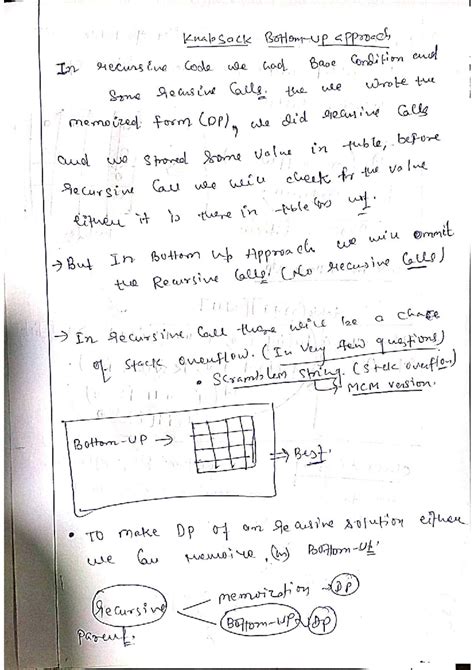 Knapsack Bottom-up approach
In recursive Code we had Base Condition and
Some Recusive Calls. the we wrote the
memoized form (DP), we did Recusive Calls
and we stored some value in table, before
Recursive Call we will check for the value
either it is there in table (or) not.
→ But In Bottom up Approach we will ommit
the Recursive Calls. (No recusive Calls)
→ In Recursive Call there will be a chace
of Stack overflow. (In very few questions)
• Scramblem string. (Stack overflow)
↳ MCM version.
Bottom-UP → ⇒ Best.
• To make DP of an Recusive solution either
we Can memoize, (or) Bottom-Up.
Recursive memoization → DP
parent. Bottom-up → DP